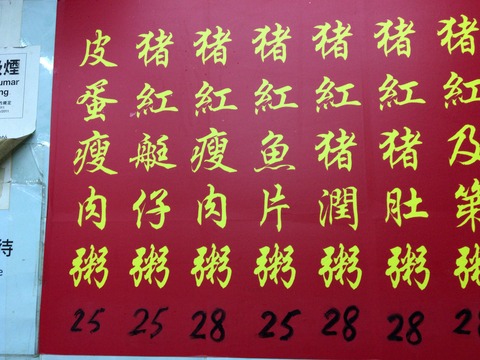 皮蛋瘦肉粥 25
猪紅艇仔粥 25
猪紅瘦肉粥 28
猪紅魚片粥 25
猪紅猪潤粥 28
猪紅猪肚粥 28
猪紅及第粥 28
煙
umar
ng
待